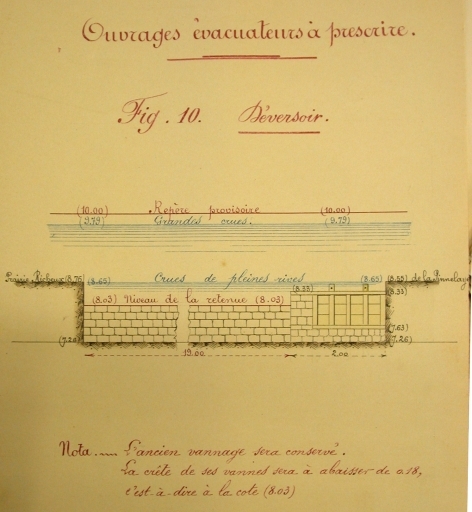 Ouvrages évacuateurs à prescrire.
Fig. 10. Déversoir.
(10.00) Repère provisoire (10.00)
(9.79) Grandes crues. (9.79)
Prairie (8.76) (8.65) Crues de pleines rives (8.65) (8.55) de la
(8.33) (8.33)
(8.03) Niveau de la retenue (8.03)
(7.63)
(7.26) (7.26)
19.00 2.00
Nota. — L'ancien vannage sera conservé.
La crête de ses vannes sera à abaisser de 0.18,
c'est-à-dire à la cote (8.03)